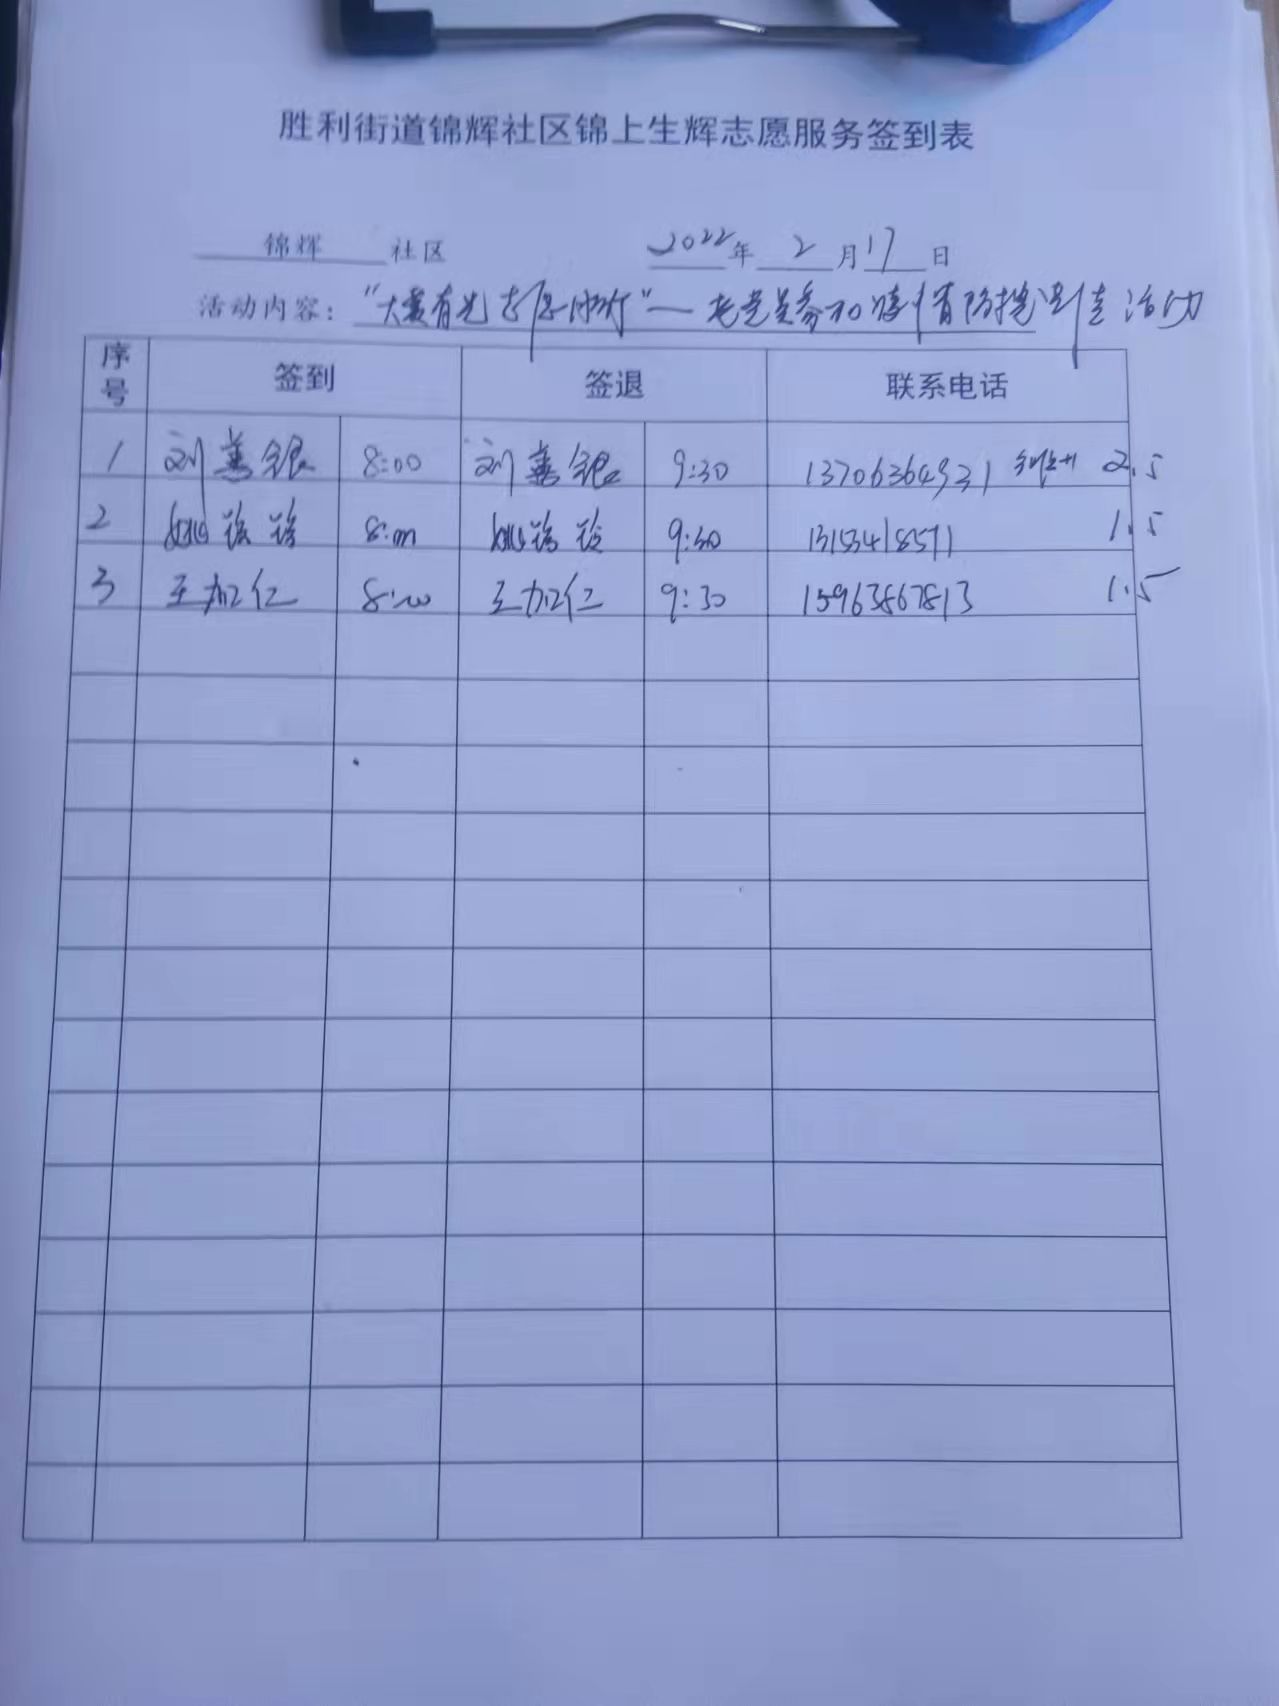 胜利街道锦辉社区锦上生辉志愿服务签到表
锦辉 社区 2022年 2 月 17 日
活动内容：“大爱有光 志愿 ”— 老党员参加 活动
序号 签到 签退 联系电话
1 刘善银 8:00 刘善银 9:30 13706364931 2.5
2 姚 8:00 姚 9:30 13153418571 1.5
3 王加仁 8:00 王加仁 9:30 15963867813 1.5